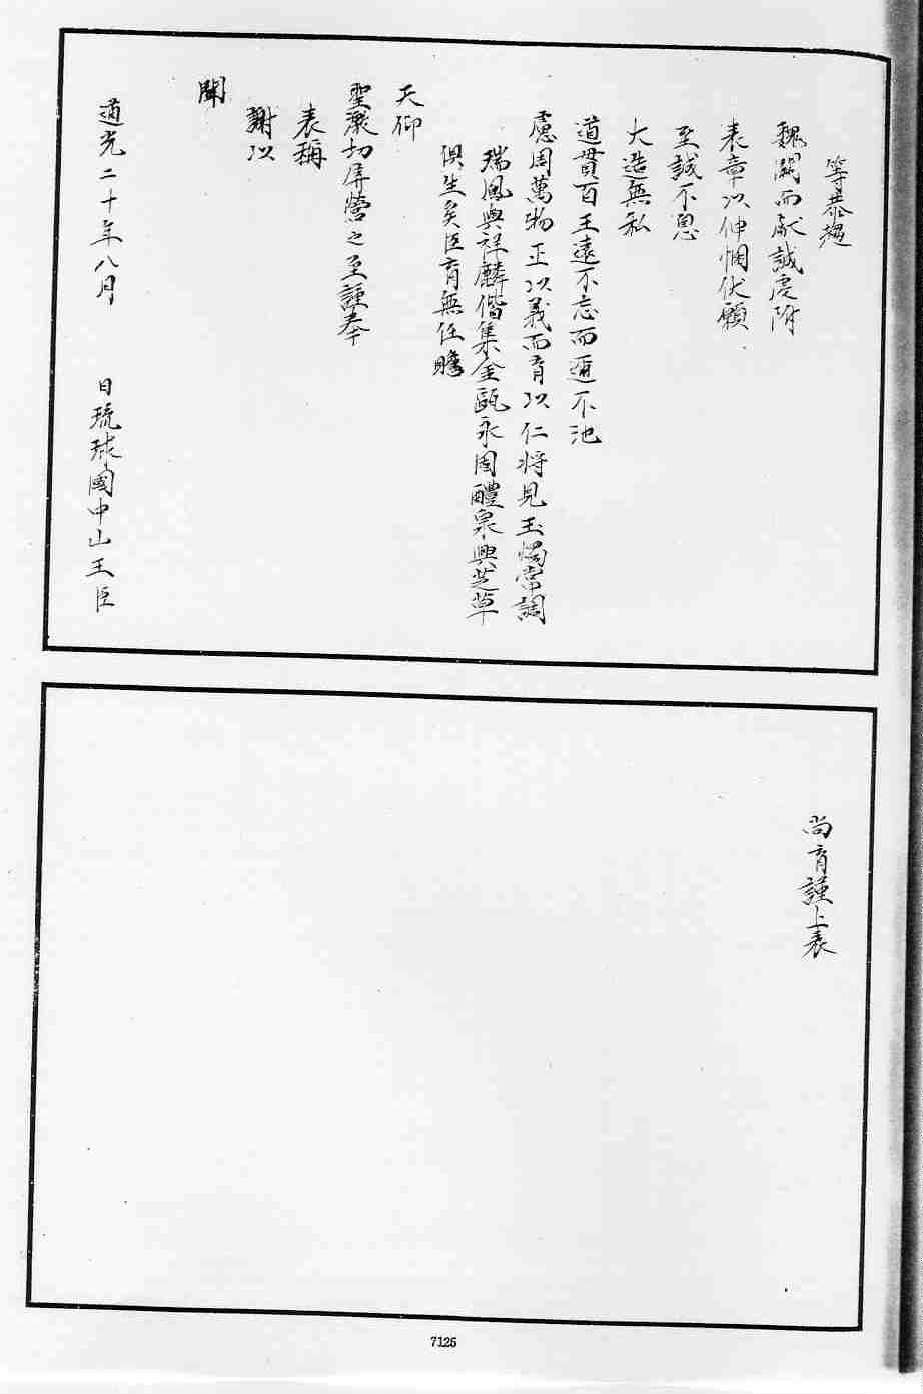 等恭趨
魏闕而獻誠慶附
表章以伸悃伏願
至誠不息
大造無私
道貫百王遠不忘而邇不池
慮周萬物正以義而育以仁將見玉燭常調
瑞鳳與祥麟偕集金甌永固醴泉興芝草
俱生矣臣育無任瞻
天仰
聖激切屏營之至謹奉
表稱
謝以
聞
道光二十年八月 日琉球國中山王臣
尚育謹上表
7125